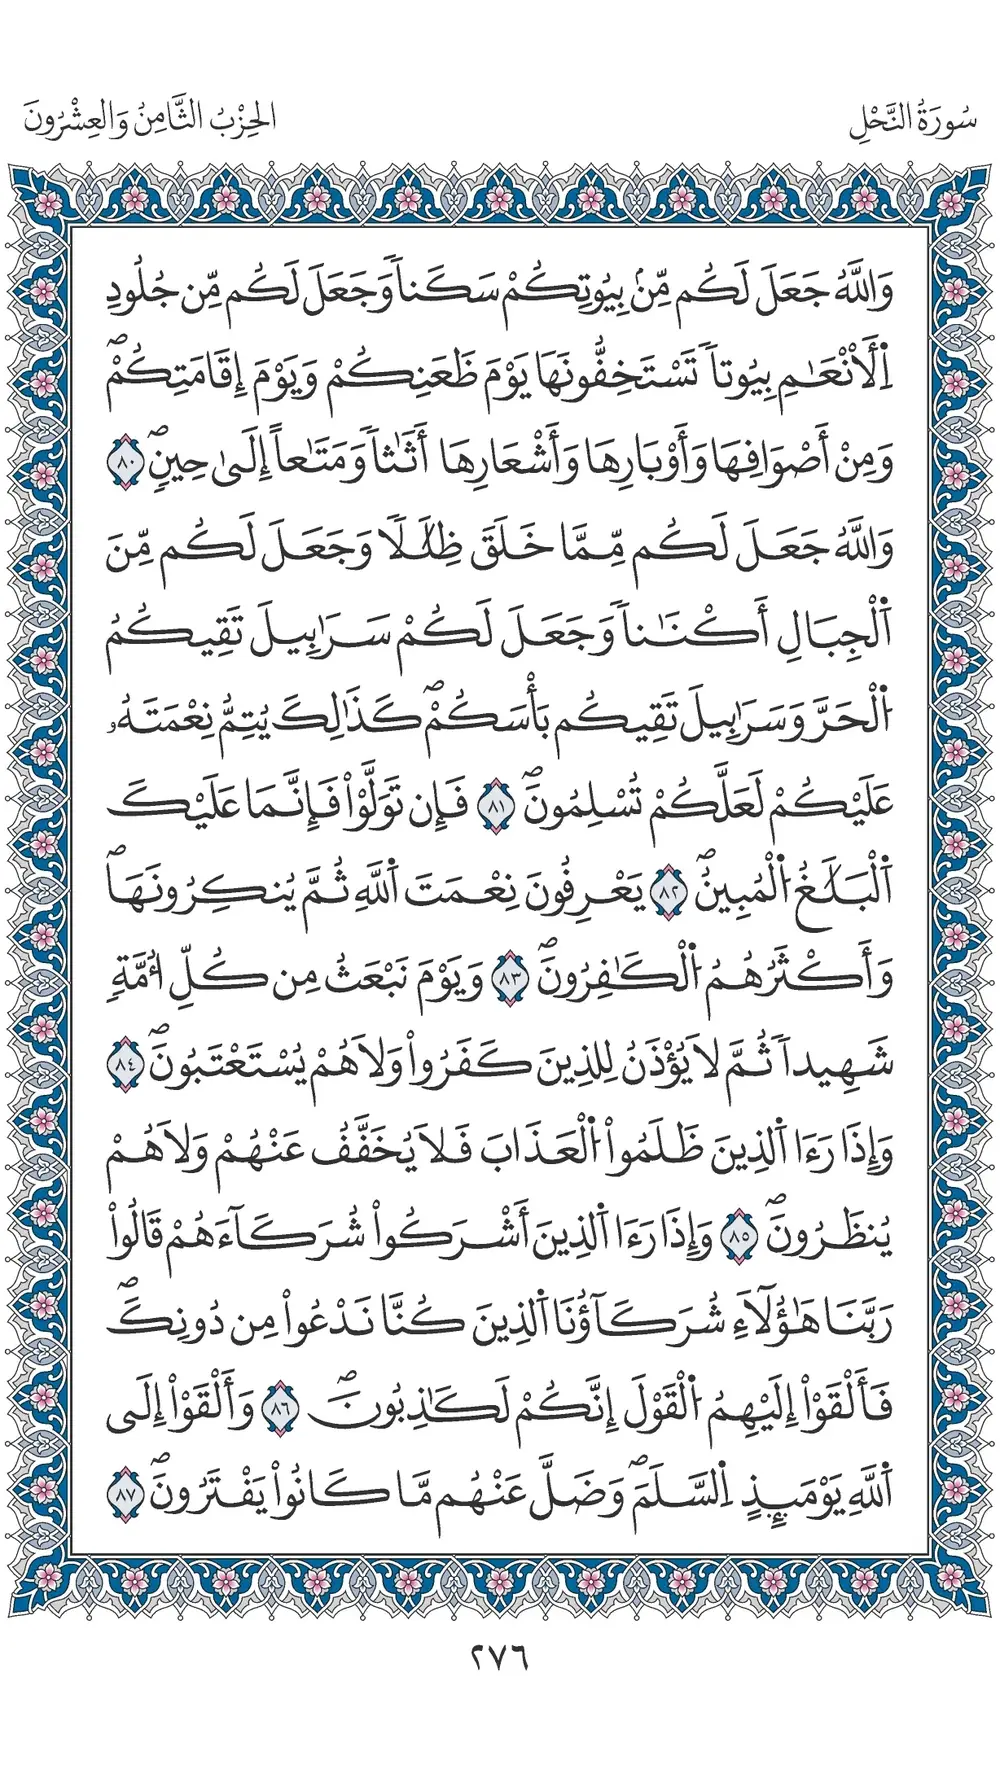 سُورَةُ النَّحْلِ
الحِزْبُ الثَّامِنُ وَالعِشْرُونَ
وَاللَّهُ جَعَلَ لَكُم مِّنۢ بِيُوتِكُمْ سَكَناٗ وَجَعَلَ لَكُم مِّن جُلُودِ
اِ۬لَانْعَٰمِ بِيُوتاٗ تَسْتَخِفُّونَهَا يَوْمَ ظَعَنِكُمْ وَيَوْمَ إِقَامَتِكُمْۖ
وَمِنْ أَصْوَافِهَا وَأَوْبَارِهَا وَأَشْعَارِهَا أَثَٰثاٗ وَمَتَٰعاً إِلَىٰ حِينٖۖ ٨٠
وَاللَّهُ جَعَلَ لَكُم مِّمَّا خَلَقَ ظِلَٰلاٗ وَجَعَلَ لَكُم مِّنَ
اَ۬لْجِبَالِ أَكْنَٰناٗ وَجَعَلَ لَكُمْ سَرَٰبِيلَ تَقِيكُمُ
اُ۬لْحَرَّ وَسَرَٰبِيلَ تَقِيكُم بَأْسَكُمْۖ كَذَٰلِكَ يُتِمُّ نِعْمَتَهُۥ
عَلَيْكُمْ لَعَلَّكُمْ تُسْلِمُونَۖ ٨١ فَإِن تَوَلَّوْاْ فَإِنَّمَا عَلَيْكَ
اَ۬لْبَلَٰغُ اُ۬لْمُبِينُۖ ٨٢ يَعْرِفُونَ نِعْمَتَ اَ۬للَّهِ ثُمَّ يُنكِرُونَهَاۖ
وَأَكْثَرُهُمُ اُ۬لْكَٰفِرُونَۖ ٨٣ وَيَوْمَ نَبْعَثُ مِن كُلِّ أُمَّةٖ
شَهِيداٗ ثُمَّ لَا يُؤْذَنُ لِلذِينَ كَفَرُواْ وَلَا هُمْ يُسْتَعْتَبُونَۖ ٨٤
وَإِذَا رَءَا اَ۬لذِينَ ظَلَمُواْ اُ۬لْعَذَابَ فَلَا يُخَفَّفُ عَنْهُمْ وَلَا هُمْ
يُنظَرُونَۖ ٨٥ وَإِذَا رَءَا اَ۬لذِينَ أَشْرَكُواْ شُرَكَآءَهُمْ قَالُواْ
رَبَّنَا هَٰؤُلَآءِ شُرَكَآؤُنَا اَ۬لذِينَ كُنَّا نَدْعُواْ مِن دُونِكَۖ
فَأَلْقَوْاْ إِلَيْهِمُ اُ۬لْقَوْلَ إِنَّكُمْ لَكَٰذِبُونَۖ ٨٦ وَأَلْقَوْاْ إِلَى
اَ۬للَّهِ يَوْمَئِذٍ اِ۬لسَّلَمَۖ وَضَلَّ عَنْهُم مَّا كَانُواْ يَفْتَرُونَۖ ٨٧
٢٧٦